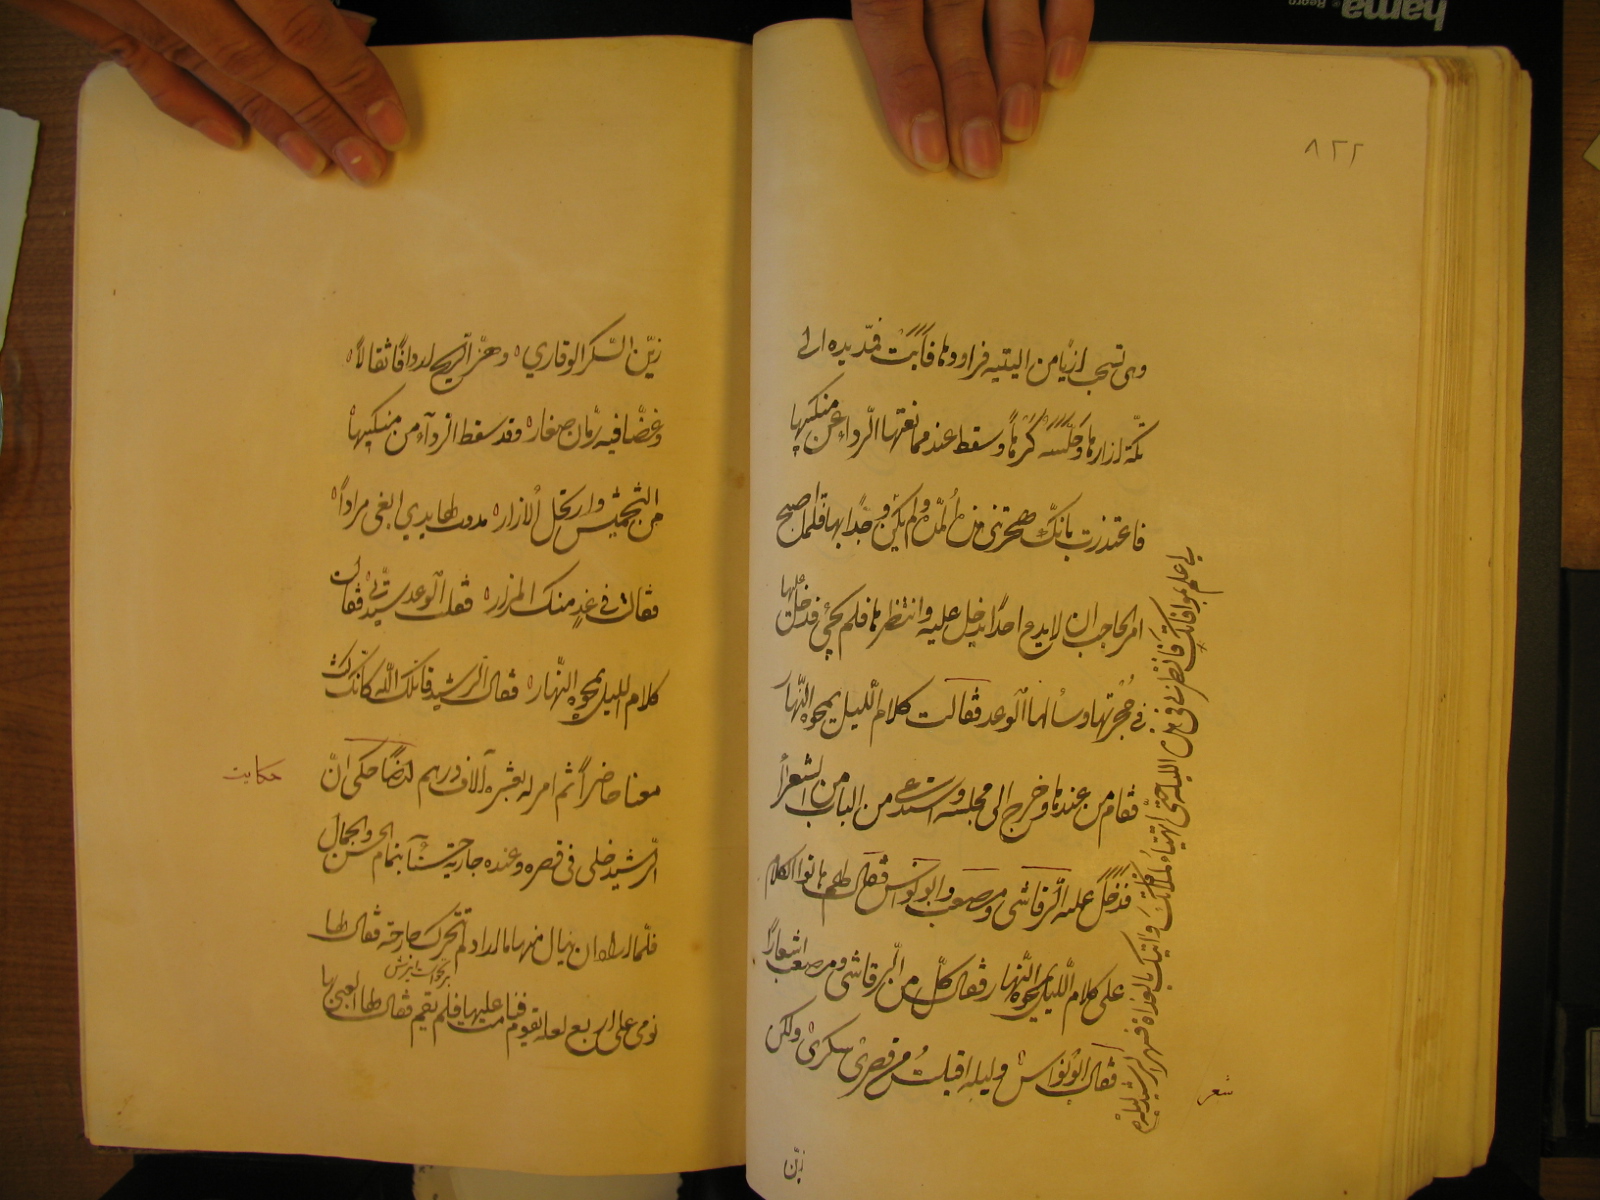 ٨٢٢
وهي تسحب اذيالها من التيه فراودها فأبت فمدّ يده الى
تكّة ازارها وسقط عند ممانعتها الرداء عن منكبيها
فاعتذرت بانك هجرتني هذه المدة ولم يكن وجدا بها فلما اصبح
امر الحاجب ان لا يدع احدًا يدخل عليه وانتظرها فلم تجئ فدخل عليها
في حجرتها وسألها الوعد فقالت كلام الليل يمحوه النهار
فقام من عندها وخرج الى مجلسه واستدعى من الباب من الشعرأ
فدخل عليه الرقاشي ومصعب وابونواس فقال لهم هاتوا الكلام
على كلام الليل يمحوه النهار فقال كل من الرقاشي ومصعب اشعارًا
فقال ابونواس وليلة اقبلت من قصري سكرى ولكن
لي علم بموافاتك فانظرني في هذه الليلة حتى اتهيأ لملاقاتك وآتيك بالغداة
شعر
زيّن
زيّن السكر الوقاري وهزّ الريح اردافًا ثقالاً
وغصنًا فيه رمان صغار وقد سقط الردآء من منكبيها
من التجميش وانحل الازار مددت لها يدي ابغي مرادًا
فقالت في غدٍ منك المزار فقلت الوعد سيدتي فقالت
كلام الليل يمحوه النهار فقال الرشيد قاتلك الله كانك كنت
معنا حاضرًا ثم امر له بعشرة آلاف درهم ايضًا حكي انّ
حكايت
الرشيد خلى في قصره وعنده جارية حسنآ بتمام الحسن والجمال
فلما اراد ان ينال منها ما اراد لم تتحرك جارحته فقال لها
نومي على اربع لعله يقوم فنامت عليها فلم يقم فقال لها العبي بها